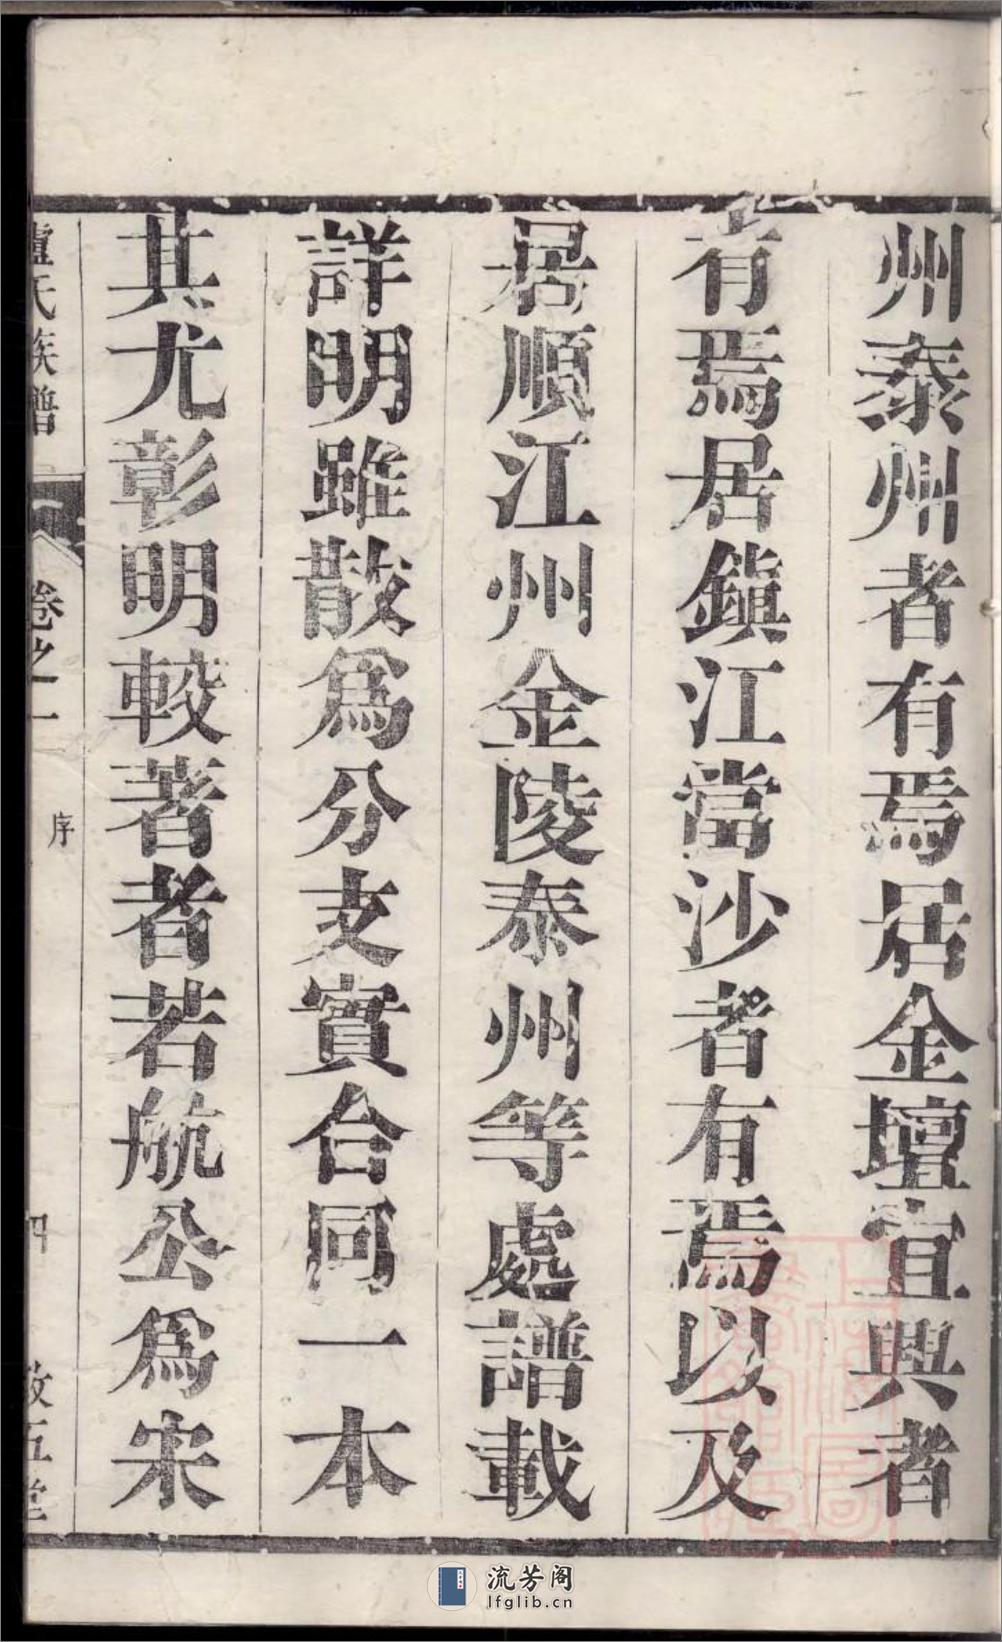 州泰州者有焉居金壇宜興者
有焉居鎭江當沙者有焉以及
居順江州金陵泰州等處譜載
詳明雖散爲分支實合同一本
其尤彰明較著者若航公爲宋
氏族譜
卷之一
序
四
流芳阁
lfglib.cn